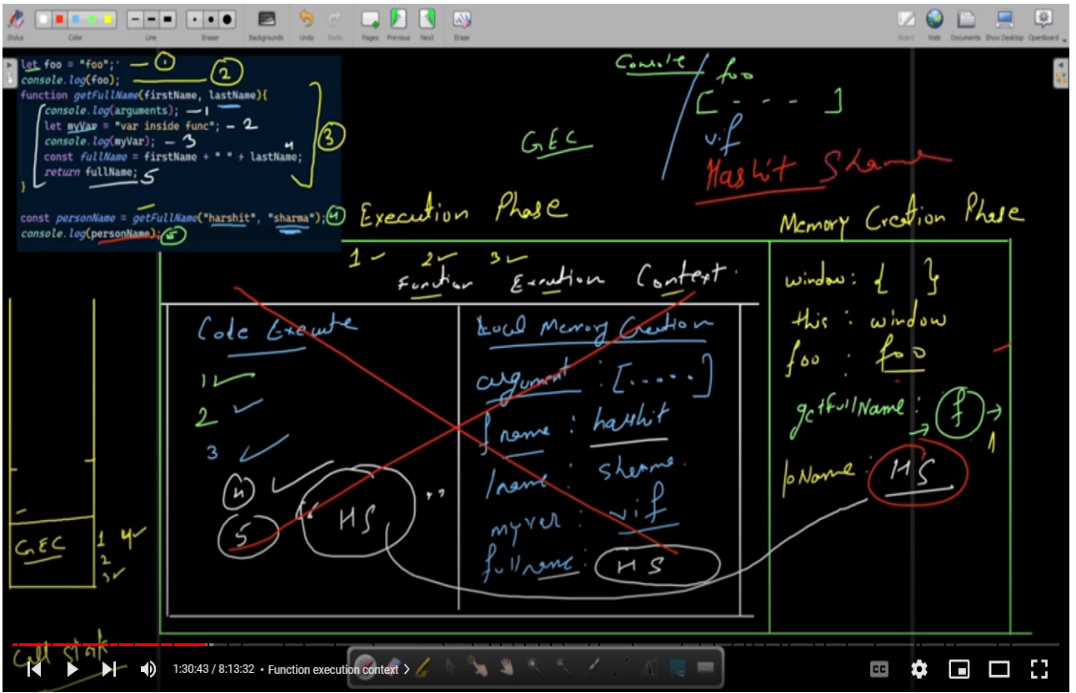 Stylus
Color
Line
Eraser
Backgrounds
Undo
Redo
Pages
Previous
Next
Erase
Board
Web
Documents
Show Desktop
OpenBoard
let foo = "foo"; — 1
console.log(foo); 2
function getFullName(firstName, lastName){
console.log(arguments); — 1
let myVar = "var inside func"; — 2
console.log(myVar); — 3
const fullName = firstName + " " + lastName; 4
return fullName; 5
}
3
const personName = getFullName("harshit", "sharma"); 4
console.log(personName); 5
Console
foo
[ - - - ]
vif
GEC
Execution Phase
Memory Creation Phase
1 2 3
Function Execution Context
Code Execute
1
2
3
4
5
HS
Local Memory Creation
argument : [.....]
fname : harshit
lname :
myver : vif
fullname: HS
window: { }
this : window
foo : foo
getFullName: f → 1
HS
GEC
1 4
2
3
1:30:43 / 8:13:32 • Function execution context >
CC